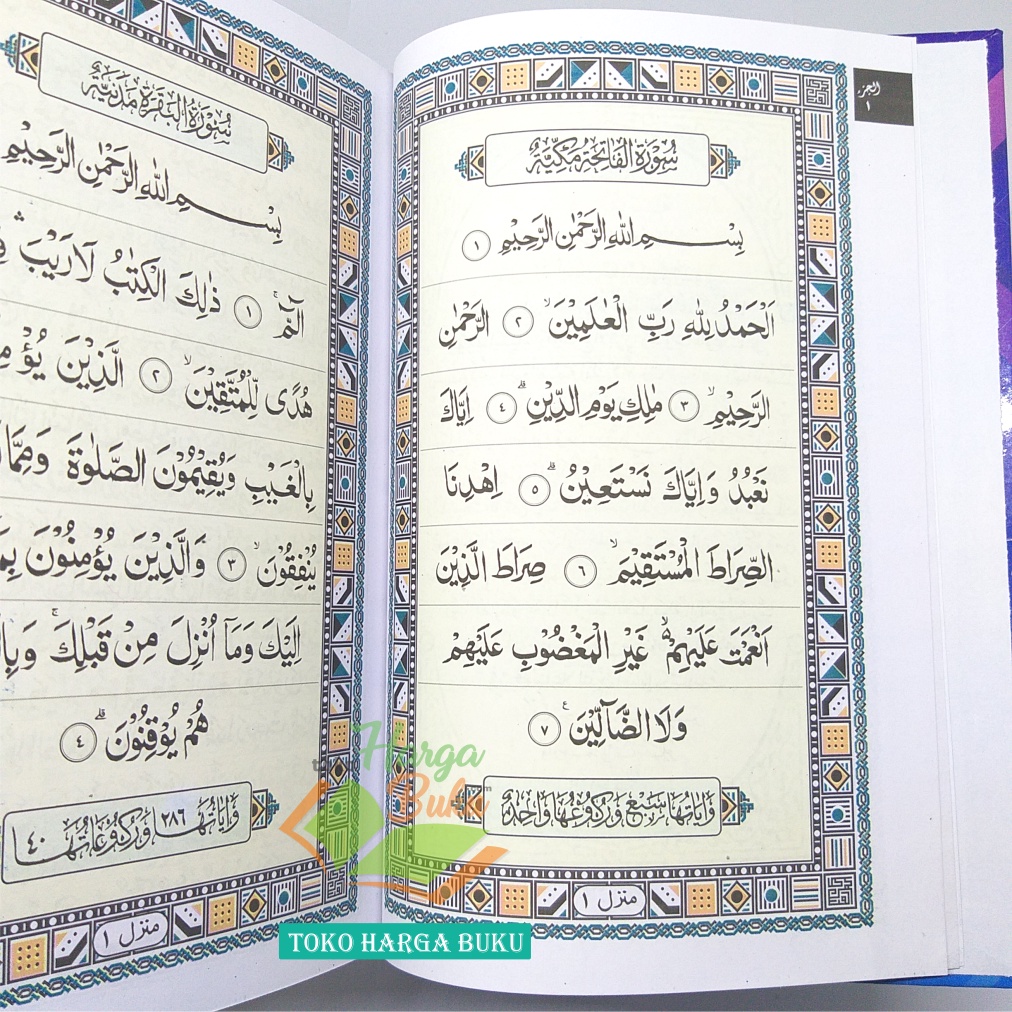 الجزء
١
سُوْرَةُ الْفَاتِحَةِ مَكِّيَّةٌ
بِسْمِ اللّٰهِ الرَّحْمٰنِ الرَّحِيْمِ ١
اَلْحَمْدُ لِلّٰهِ رَبِّ الْعٰلَمِيْنَۙ ٢ الرَّحْمٰنِ
الرَّحِيْمِۙ ٣ مٰلِكِ يَوْمِ الدِّيْنِۗ ٤ اِيَّاكَ
نَعْبُدُ وَاِيَّاكَ نَسْتَعِيْنُۗ ٥ اِهْدِنَا
الصِّرَاطَ الْمُسْتَقِيْمَۙ ٦ صِرَاطَ الَّذِيْنَ
اَنْعَمْتَ عَلَيْهِمْ ەۙ غَيْرِ الْمَغْضُوْبِ عَلَيْهِمْ
وَلَا الضَّاۤلِّيْنَ ࣖ ٧
وَاٰيَاتُهَا سَبْعٌ وَرُكُوْعُهَا وَاحِدَةٌ
منزل ١
سُوْرَةُ الْبَقَرَةِ مَدَنِيَّةٌ
بِسْمِ اللّٰهِ الرَّحْمٰنِ الرَّحِيْمِ
الۤمّۤۚ ١ ذٰلِكَ الْكِتٰبُ لَا رَيْبَۛ
هُدًى لِّلْمُتَّقِيْنَۙ ٢ الَّذِيْنَ
بِالْغَيْبِ وَيُقِيْمُوْنَ الصَّلٰوةَ وَمِمَّا
يُنْفِقُوْنَۙ ٣ وَالَّذِيْنَ يُؤْمِنُوْنَ
اِلَيْكَ وَمَآ اُنْزِلَ مِنْ قَبْلِكَۚ
هُمْ يُوْقِنُوْنَۗ ٤
وَاٰيَاتُهَا ٢٨٦ وَرُكُوْعَاتُهَا ٤٠
منزل ١
Harga
Buku
TOKO HARGA BUKU